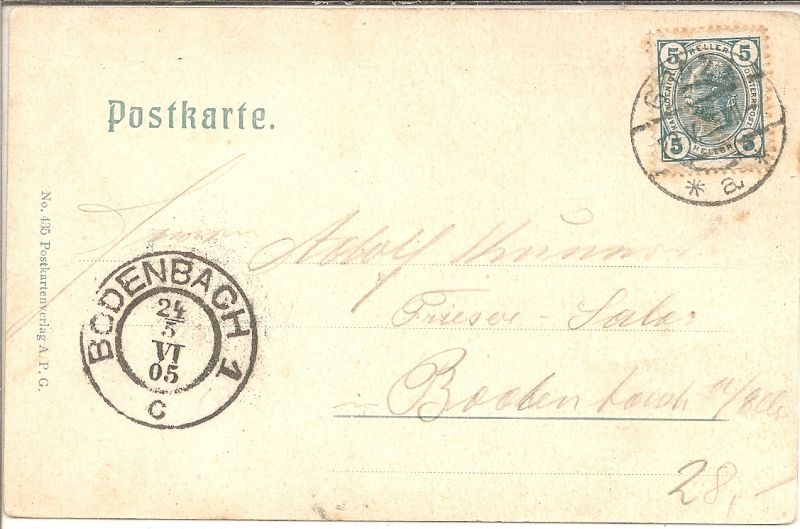 Postkarte.
5 HELLER 5
5 HELLER 5
No. 435 Postkartenverlag A. P. G.
Herrn Adolf
BODENBACH 1
24
5
VI
05
C
Friseur-Salon
in Bodenbach a/Elbe
28,-